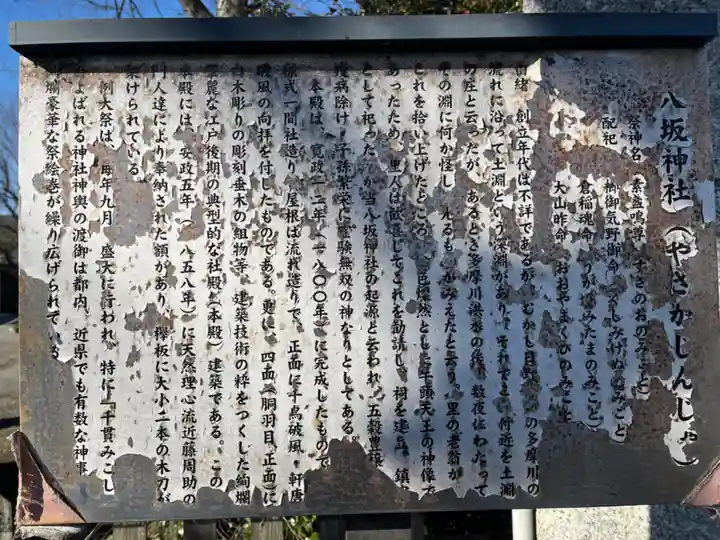 八坂神社（やさかじんじゃ）
祭神名 素盞嗚尊（すさのおのみこと）
配祀 櫛御気野御命（くしみけぬのみこと）
倉稲魂命（うがのみたまのみこと）
大山咋命（おおやまくひのみこと）
由緒 創立年代は不詳であるが、むかし日野 の多摩川の
流れに沿って土淵という深淵があり、それでこの付近を土淵
の庄と云ったが、あるとき多摩川洪水の後、数夜にわたって
その淵に何か怪し 光るものがみえたと云う。里の老翁が
これを拾い上げたところ、 色燦然とした牛頭天王の神像で
あったため、里人は歓喜してこれを勧請し、祠を建立、鎮
として祀った が当八坂神社の起源と云われ、五穀豊穣
疫病除け、子孫繁栄に霊験無双の神なりとしてある。
本殿は、寛政一二年（一八〇〇年）に完成したもので
様式一間社造り、屋根は流れ造りで、正面に千鳥破風・軒唐
破風の向拝を付したものである。更に、四面（胴羽目、正面）に
白木彫りの彫刻、垂木の組物等、建築技術の粋をつくした絢爛
華麗な江戸後期の典型的な社殿（本殿）建築である。この
本殿には、安政五年（一八五八年）に天然理心流近藤周助の
門人達により奉納された額があり、欅板に大小二本の木刀が
架けられている。
例大祭は、毎年九月 盛大に行われ、特に「千貫みこし
とよばれる神社神輿の渡御は都内、近県でも有数な神事
爛豪華な祭絵巻が繰り広げられている。